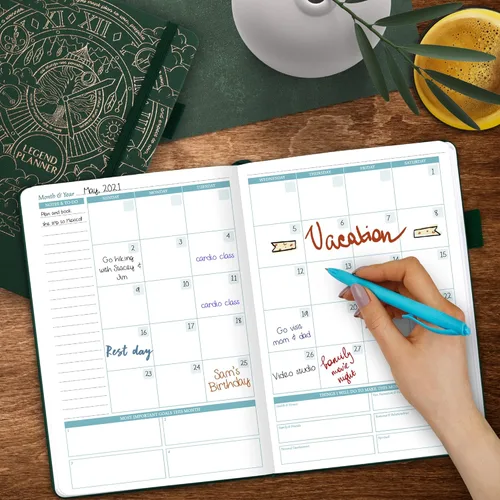 LEGEND
PLANNER
Month & Year May, 2021
NOTES & TO-DO
Plan and book
the trip to Mexico!
SUNDAY MONDAY TUESDAY
2 3 4
Go hiking
with Stacey &
Jim
cardio class
9 10 11
cardio class
16 17 18
Rest day
23 24 25
Sam's
Birthday
MOST IMPORTANT GOALS THIS MONTH
WEDNESDAY THURSDAY FRIDAY SATURDAY
1
5 6 7 8
Vacation
12 13
19
Go visit
mom & dad
26 27
Video studio
family
movie
night
THINGS I WILL DO TO MAKE